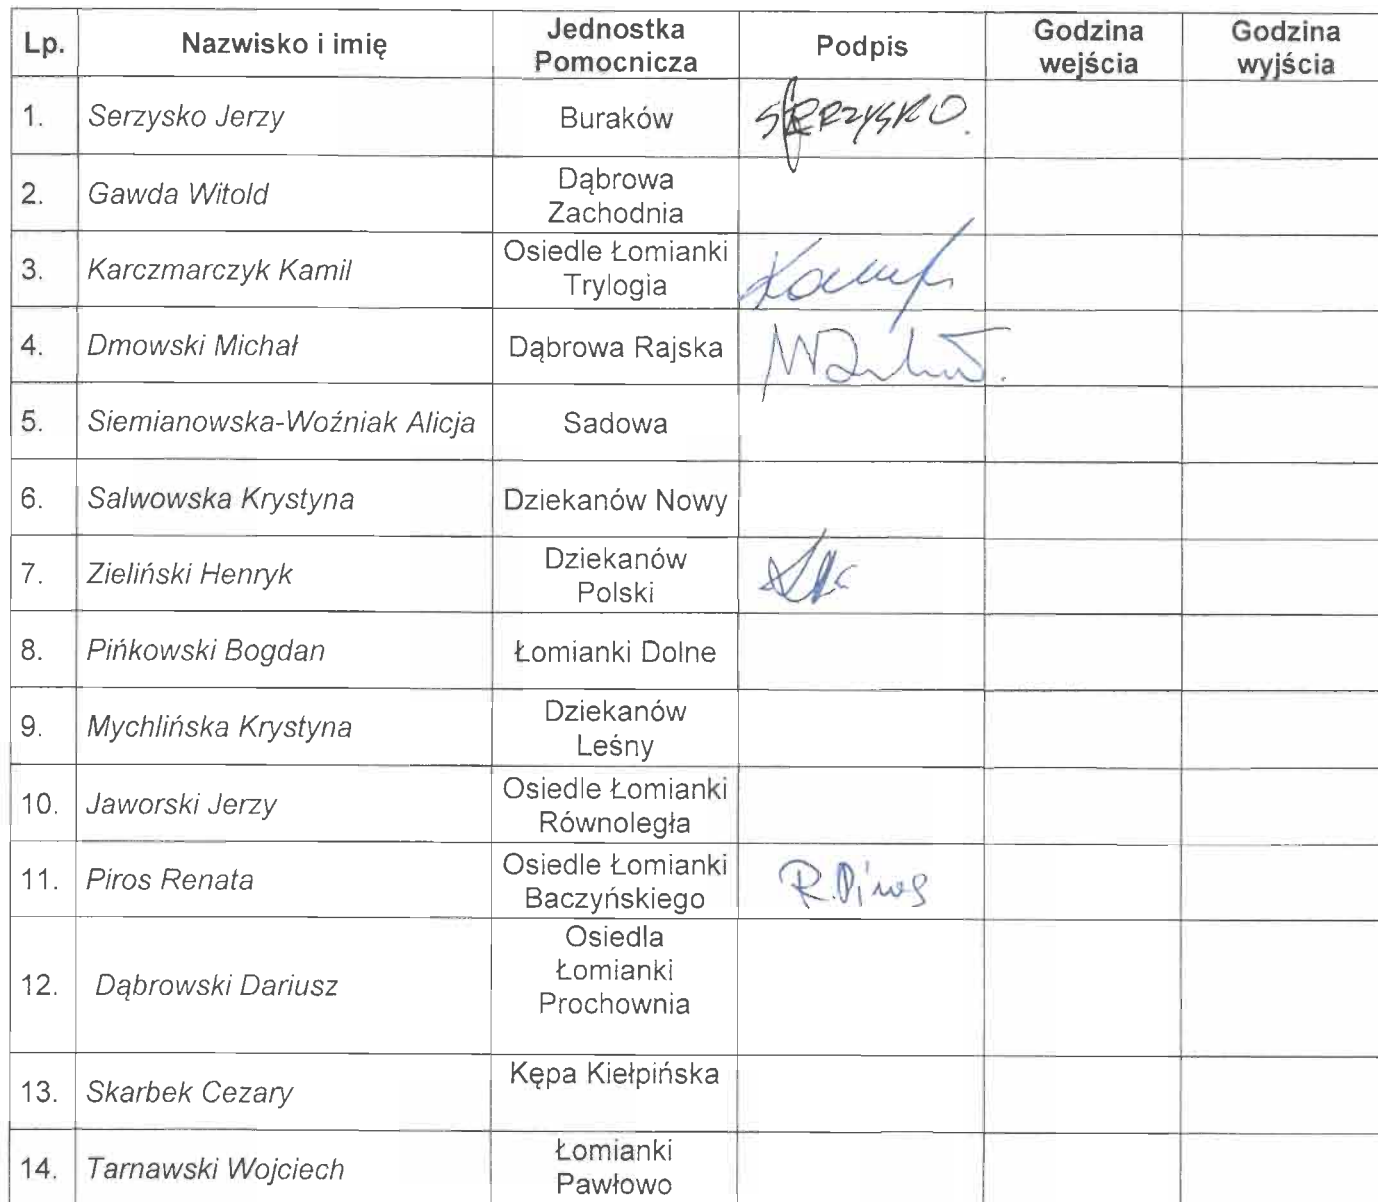 Lp. Nazwisko i imię Jednostka Pomocnicza Podpis Godzina wejścia Godzina wyjścia
1. Serzysko Jerzy Buraków SERZYSKO.
2. Gawda Witold Dąbrowa Zachodnia
3. Karczmarczyk Kamil Osiedle Łomianki Trylogia
4. Dmowski Michał Dąbrowa Rajska
5. Siemianowska-Woźniak Alicja Sadowa
6. Salwowska Krystyna Dziekanów Nowy
7. Zieliński Henryk Dziekanów Polski
8. Pińkowski Bogdan Łomianki Dolne
9. Mychlińska Krystyna Dziekanów Leśny
10. Jaworski Jerzy Osiedle Łomianki Równoległa
11. Piros Renata Osiedle Łomianki Baczyńskiego R.Piros
12. Dąbrowski Dariusz Osiedla Łomianki Prochownia
13. Skarbek Cezary Kępa Kiełpińska
14. Tarnawski Wojciech Łomianki Pawłowo